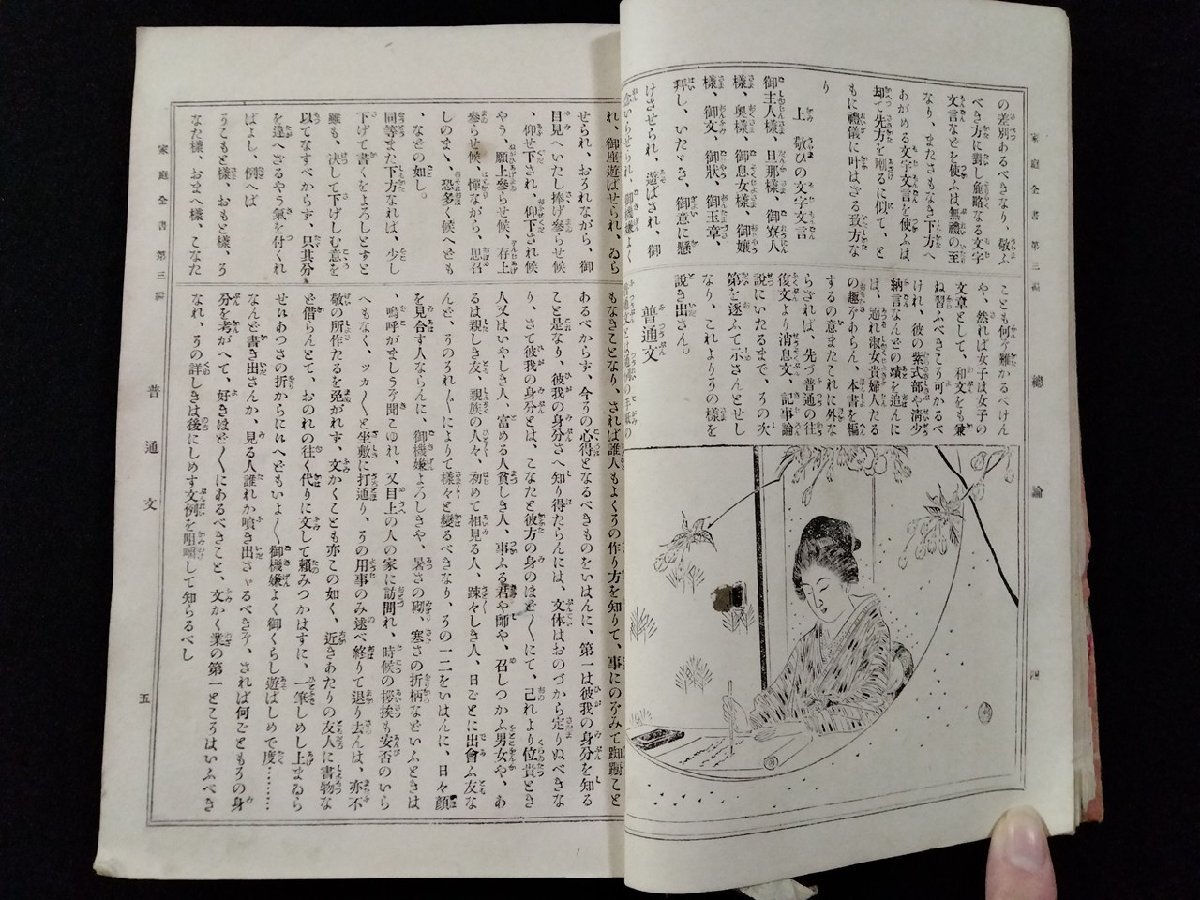 家庭全書 第三編
總論
四
の差別あるべきなり、敬ふ
べき方に對し麁略なる文字
文言などを使ふは無禮の至
なり、またさもなき下方へ
あがめる文字文言を使ふは
却て先方を嘲るに似て、と
もに禮儀に叶はざる致方な
り
上 敬ひの文字文言
御主人樣、旦那樣、御寮人
樣、奧樣、御息女樣、御孃
樣、御文、御狀、御玉章、
拜し、いたゞき、御意に懸
けさせられ、遊ばされ、御
念いらせられ、御機嫌よく
ことも何ぞ難かるべけん
や、然れば女子は女子の
文章として、和文をも兼
ね習ふべきこう可かるべ
けれ、彼の紫式部や淸少
納言なんどの蹟を追んに
は、適れ淑女貴婦人たる
の趣ぞあらん、本書を編
するの意またこれに外な
らざれば、先づ普通の往
復文より消息文、記事論
說にいたるまで、その次
第を逐ふて示さんとせし
なり、これよりその樣を
說き出さん。
普通文
家庭全書 第三編
普通文
五
れ、御座遊ばせられ、ゐら
せられ、おろれながら、御
目見へいたし捧げ參らせ候
、仰せ下され、仰下され候
やう、願上參らせ候、存上
參らせ候、憚ながら、思召
しのまゝ、恐多く候へども
、などの如し。
同等また下方なれば、少し
下げて書くをよろしとすと
雖も、決して下げしむ意を
以てなすべからず、只其分
を違へざるやう氣を付くれ
ばよし、例へば
うこもと樣、おもと樣、う
なた樣、おまへ樣、こなた
もなきことなり、されば誰人もよくその作り方を知りて、事にのぞみて踟蹰こと
あるべからず、今その心得となるべきものをいはんに、第一は彼我の身分を知る
こと是なり、彼我の身分さへ知り得たらんには、文体はおのづから定りぬべきな
り、さて彼我の身分とは、こなたと彼方の身のほど〳〵にて、己れより位貴とき
人又はいやしき人、富める人貧しき人、事ふる君や師や、召しつかふ男女や、あ
るは親しき友、親族の人々、初めて相見る人、踈々しき人、日ごとに出會ふ友な
んど、そのそれ〳〵によりて樣々と變るべきなり、その一二をいはんに、日々顔
を見合す人ならんに、御機嫌よろしきや、暑さの砌、寒さの折柄などいふときは
、嗚呼がましうぞ聞こゆれ、又目上の人の家に訪問れ、時候の挨拶も安否のいら
へもなく、ツカ〳〵と坐敷に打通り、その用事のみ述べ終りて退り去んは、亦不
敬の所作たるを免がれず、文かくことも亦この如く、近きあたりの友人に書物な
ど借らんとて、おのれの往く代りに文して賴みつかはすに、一筆しめし上まゐら
せそれあつさの折からにそれへどもいよ〳〵御機嫌よく御くらし遊ばしめで度………
なんど書き出さんか、見る人誰れか噴き出さゞるべきぞ、されば何ごともその身
分を考がへて、好きほど〳〵にあるべきこと、文かく業の第一ところはいふべき
なれ、その詳しきは後にしめす文例を咀嚼して知らるべし